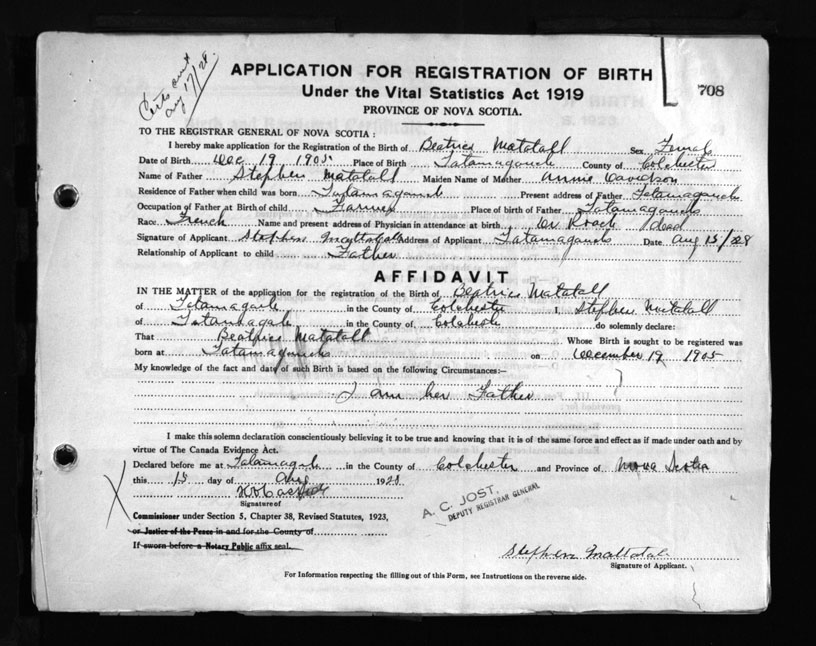 Certs sent
Aug 17/28
APPLICATION FOR REGISTRATION OF BIRTH
708
Under the Vital Statistics Act 1919
PROVINCE OF NOVA SCOTIA.
TO THE REGISTRAR GENERAL OF NOVA SCOTIA:
I hereby make application for the Registration of the Birth of Beatrice Matatall Sex Female
Date of Birth Dec 19 1905 Place of Birth Tatamagouche County of Colchester
Name of Father Stephen Matatall Maiden Name of Mother Annie Davidson
Residence of Father when child was born Tatamagouche Present address of Father Tatamagouche
Occupation of Father at Birth of child Farmer Place of birth of Father Tatamagouche
Race French Name and present address of Physician in attendance at birth Dr Roach dead
Signature of Applicant Stephen Mattatall Address of Applicant Tatamagouche Date Aug 15/28
Relationship of Applicant to child Father
AFFIDAVIT
IN THE MATTER of the application for the registration of the Birth of Beatrice Matatall
of in the County of Colchester I, Stephen Matatall
of in the County of Colchester do solemnly declare:
That Beatrice Matatall Whose Birth is sought to be registered was
born at Tatamagouche on December 19 1905
My knowledge of the fact and date of such Birth is based on the following Circumstances:—
I am her Father
I make this solemn declaration conscientiously believing it to be true and knowing that it is of the same force and effect as if made under oath and by
virtue of The Canada Evidence Act.
Declared before me at in the County of Colchester and Province of Nova Scotia
this 15 day of Aug 1928
Signature of
Commissioner under Section 5, Chapter 38, Revised Statutes, 1923,
or Justice of the Peace in and for the County of
If sworn before a Notary Public affix seal.
A. C. JOST,
DEPUTY REGISTRAR GENERAL
Stephen Mattatall
Signature of Applicant.
For Information respecting the filling out of this Form, see Instructions on the reverse side.